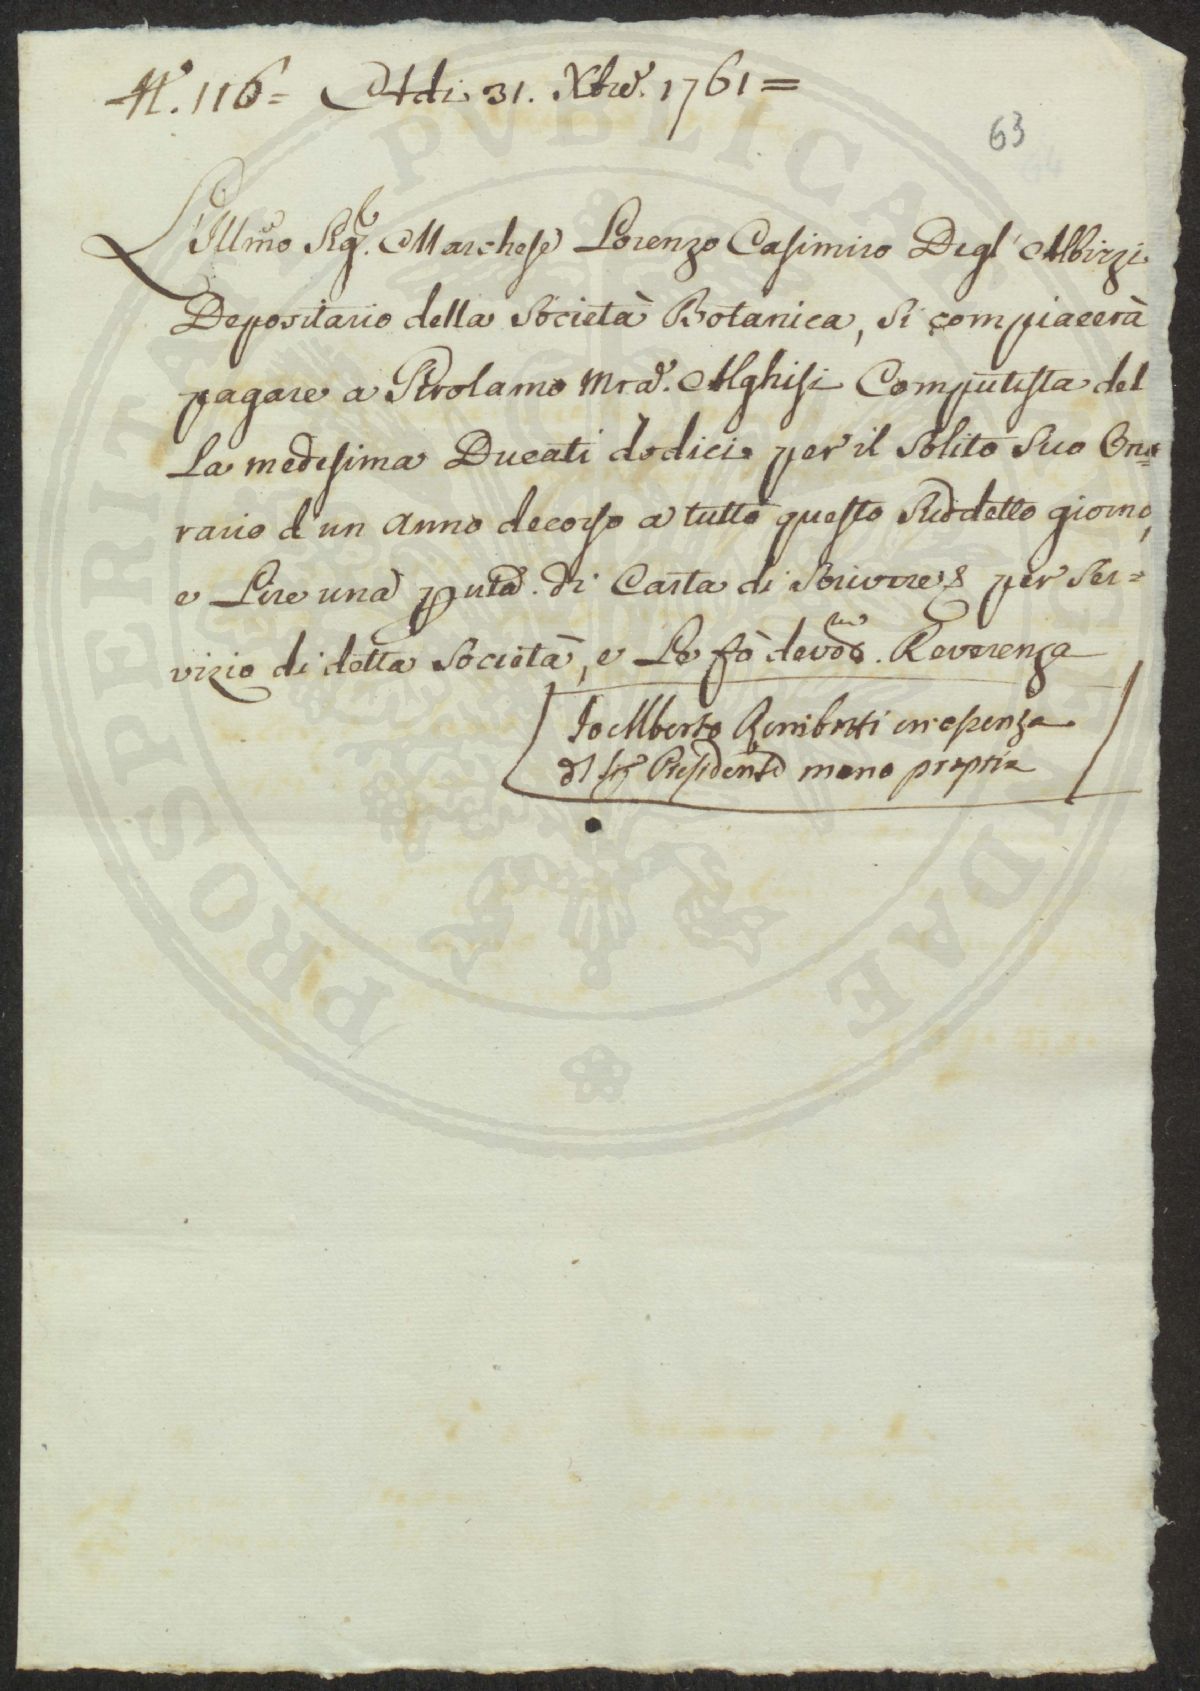 N.º 116= Adi 31. Xbre. 1761=
63
L'Illmo Sigr. Marchese Lorenzo Casimiro Degl' Albizzi
Depositario della Società Botanica, si compiacerà
pagare a Girolamo Mra. Alghisi Computista del
la medesima Ducati dodici per il solito suo Ono=
rario d un anno decorso a tutto questo suddetto giorno,
e Lire una di Carta di Scrivere per ser=
vizio di detta Società, e Le fò devma. Reverenza
Io Alberto Rimbotti in assenza
del Sig Presidente mano propria
PROSPERITATI PVBLICAE